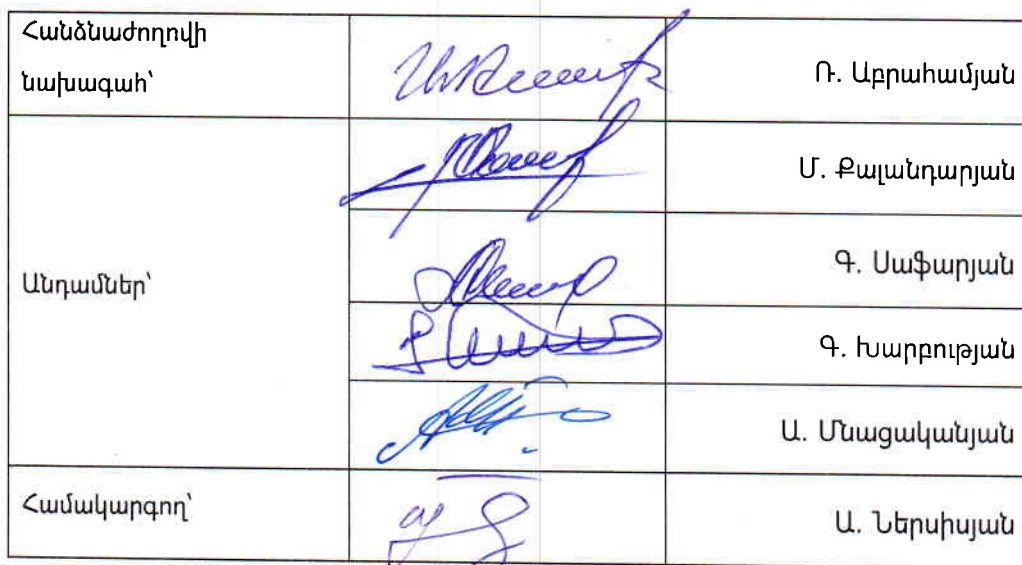 Հանձնաժողովի
նախագահ՝
Ռ. Աբրահամյան
Մ. Քալանդարյան
Անդամներ՝
Գ. Սաֆարյան
Գ. Խարբության
Ա. Մնացականյան
Համակարգող՝
Ա. Ներսիսյան